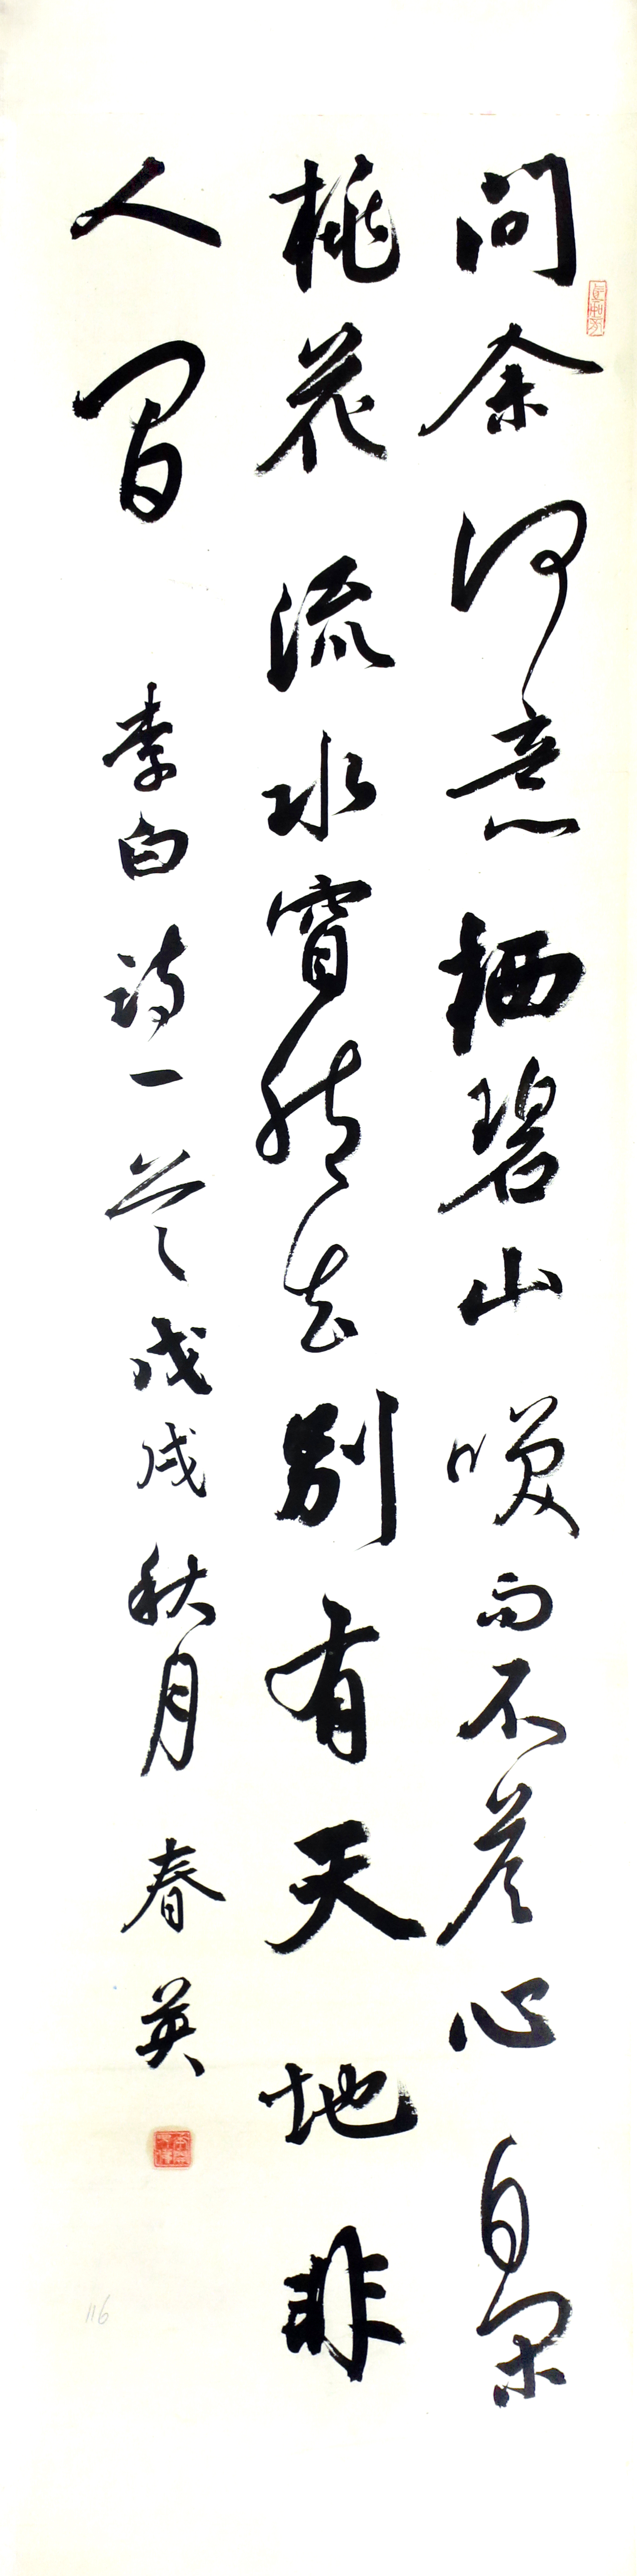 问余何意栖碧山笑而不答心自闲
桃花流水窅然去别有天地非
人间
李白诗一首戊戌秋月 春英
116